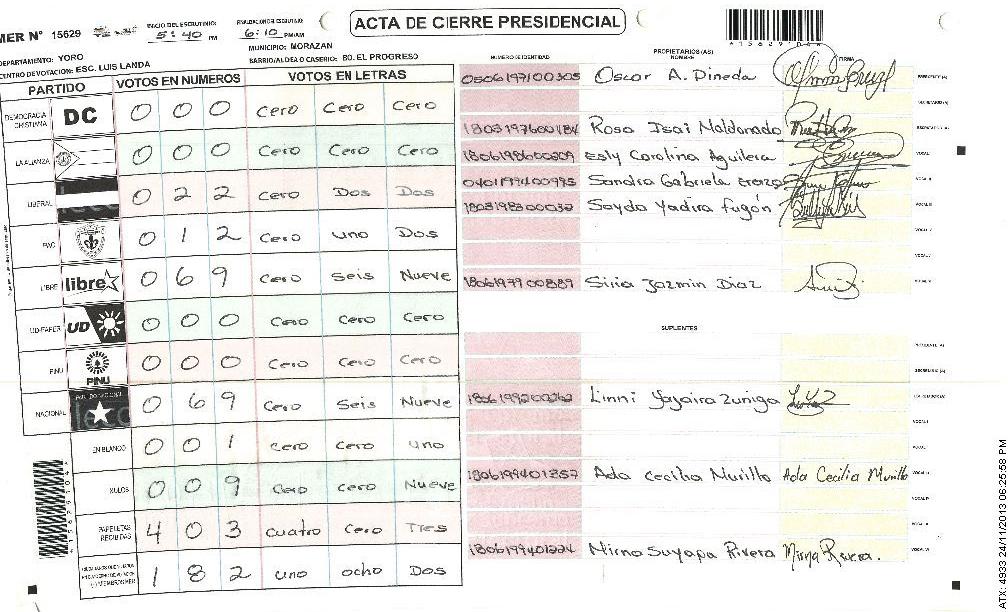 MER N° 15629
INICIO DEL ESCRUTINIO: 5:40 PM
FINALIZACION DEL ESCRUTINIO: 6:10 PM/AM
ACTA DE CIERRE PRESIDENCIAL
DEPARTAMENTO: YORO
MUNICIPIO: MORAZAN
CENTRO DE VOTACION: ESC. LUIS LANDA
BARRIO/ALDEA O CASERIO: BO. EL PROGRESO
PARTIDO VOTOS EN NUMEROS VOTOS EN LETRAS
DEMOCRACIA CRISTIANA DC 0 0 0 Cero Cero Cero
LA ALIANZA 0 0 0 Cero Cero Cero
LIBERAL 0 2 2 Cero Dos Dos
PAC 0 1 2 Cero uno Dos
LIBRE libre 0 6 9 Cero Seis Nueve
UD-FAPER UD 0 0 0 Cero Cero Cero
PINU PINU 0 0 0 Cero Cero Cero
NACIONAL 0 6 9 Cero Seis Nueve
EN BLANCO 0 0 1 Cero Cero uno
NULOS 0 0 9 Cero Cero Nueve
PAPELETAS RECIBIDAS 4 0 3 Cuatro Cero Tres
1 8 2 uno ocho Dos
PROPIETARIOS(AS)
NUMERO DE IDENTIDAD NOMBRE FIRMA
0506197100305 Oscar A. Pineda PRESIDENTE (A)
SECRETARIO (A)
1803197600484 Rosa Isai Maldonado
Esly Carolina Aguilera VOCAL I
0401199400995 Sandra Gabriela
Sayda Yadira Fugón
1806197900889 Siria Jazmin Diaz
SUPLENTES
PRESIDENTE (A)
SECRETARIO (A)
Linni Yajaira Zuniga
1806199401357 Ada Cecilia Murillo Ada Cecilia Murillo
1806199401224 Mirna Suyapa Rivera Mirna Rivera.
ATX: 4933 24/11/2013 06:25:58 PM